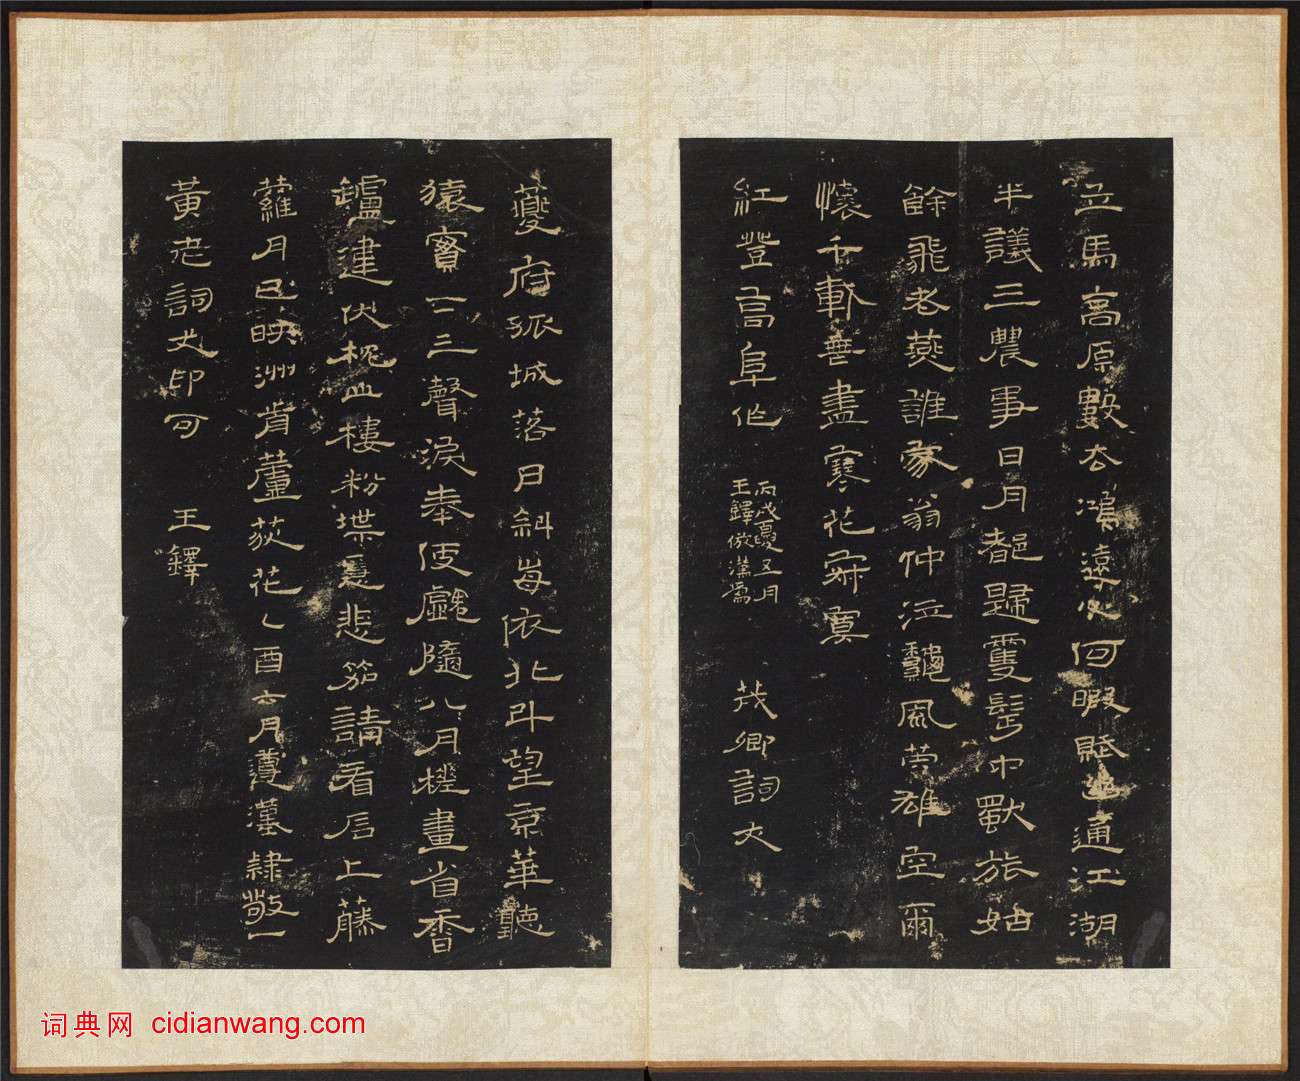 立馬高原數去鴻遠心何暇賦通江湖
半議三農事日月都歸雙髩中獸旅姑
餘飛老燕誰家翁仲泣風勞雄空爾
懷千載善盡寒花
紅豐高阜作
丙戌夏五月
王鐸倣漢
茂卿詞丈
夔府孤城落日斜每依北斗望京華聽
猿實下三聲淚奉使虛隨八月槎畫省香
鑪違伏枕山樓粉堞隱悲笳請看石上藤
蘿月已映洲前蘆荻花乙酉六月遵漢隸敬一
黃老詞丈印可
王鐸
词典网 cidianwang.com